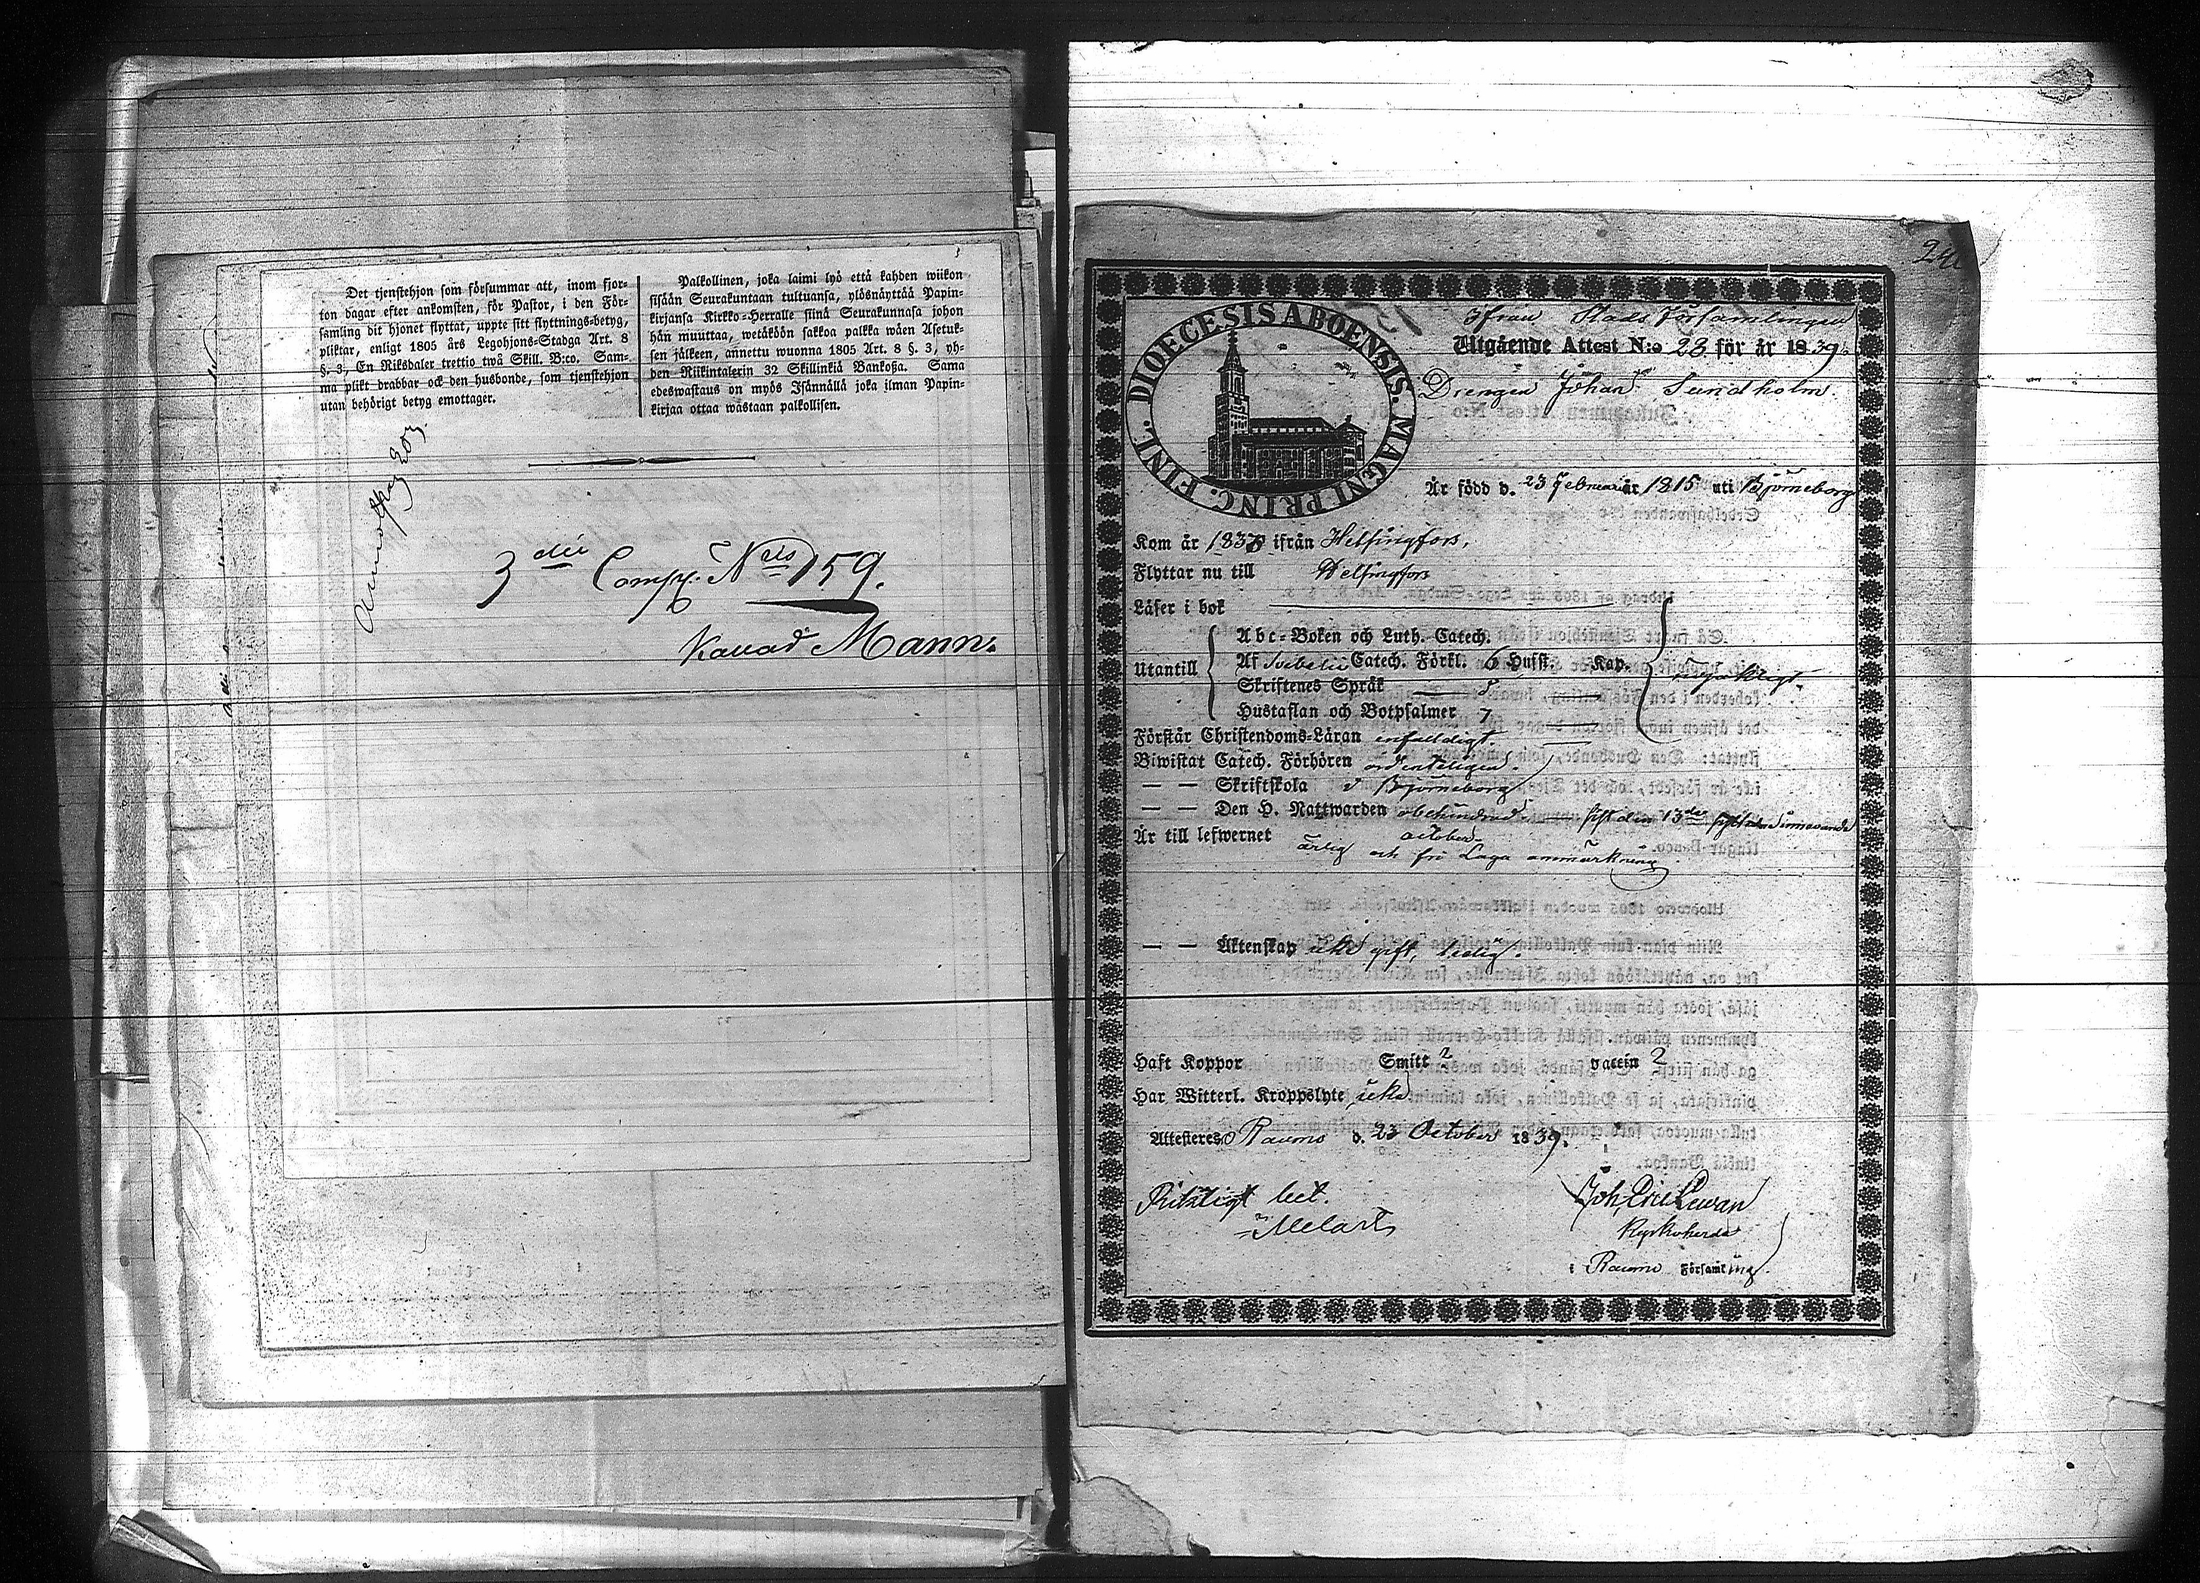 Det tjenstehjon som försummar att, inom fjor-
ton dagar efter ankomsten, för Pastor, i den För-
samling dit hjonet flyttat, uppte sitt flyttnings-betyg,
pliktar, enligt 1805 års Legohjons-Stadga Art. 8
§. 3, En Riksdaler trettio twå Skill. B:co. Sam-
ma plikt drabbar ock den husbonde, som tjenstehjon
utan behörigt betyg emottager.
Palkollinen, joka laimi lyö että kahden wiikon
sisään Seurakuntaan tultuansa, ylösnäyttää Papin-
kirjansa Kirkko-Herralle siinä Seurakunnasa johon
hän muuttaa, wetäköön sakkoa palkka wäen Asetuk-
sen jälkeen, annettu wuonna 1805 Art. 8 §. 3, yh-
den Riikintalerin 32 Skillinkiä Bankosa. Sama
edeswastaus on myös Isännällä joka ilman Papin-
kirjaa ottaa wastaan palkollisen.
3 die Comp. N 159.
Mann
240
DIOECESIS ABOENSIS. MAGNI PRINC. FINL.
Ifrån Stads Församlingen
Utgående Attest N:o 23 för år 1839
Drengen Johan Sundholm.
Är född d. 23 Februari år 1815 uti Björneborg
Kom år 1838 ifrån Helsingfors,
Flyttar nu till Helsingfors
Läser i bok
Utantill
Abc-Boken och Luth. Catech.
Af Svebelii Catech. Förkl. 6 Husst. Kap.
Skriftenes Språk
Hustaflan och Botpsalmer 7
Förstår Christendoms-Läran enfaldigt.
Biwistat Catech. Förhören ordenteligen.
— — Skriftskola i Björneborg
— — Den H. Nattwarden obehindrad. sist den 13de innevarande
october
Är till lefwernet ärlig och fri Laga anmärkning.
— — Äktenskap icke gift, ledig.
Haft Koppor Smitt 2 vaccin 2
Har Witterl. Kroppslyte icke
Attesteres Raumo d. 23 October 1839.
Riktigt bet.
Melart
Joh. Eric Lewan
Kyrkoherde
i Raumo Församling.